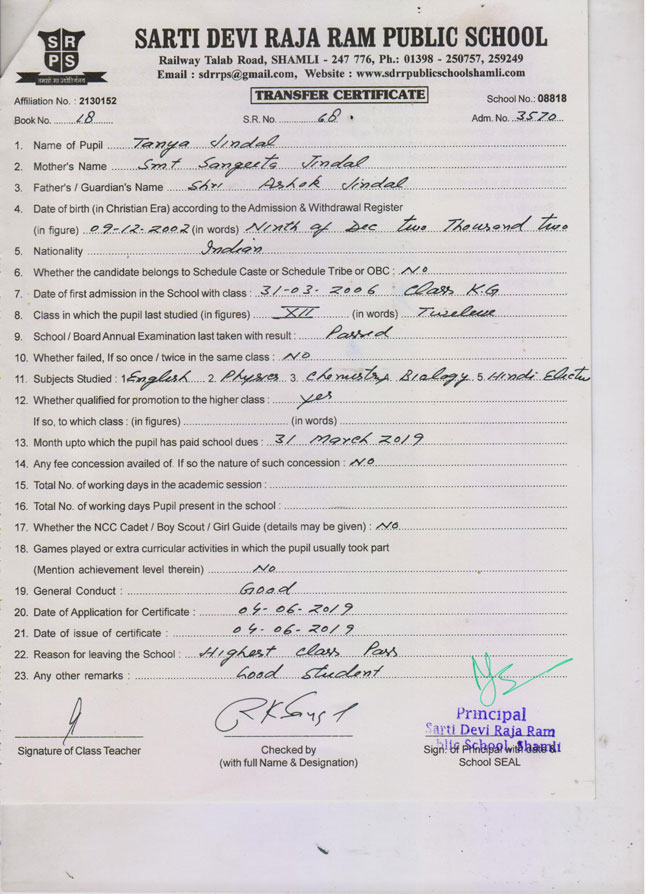 SRPS
तमसो मा ज्योतिर्गमय
SARTI DEVI RAJA RAM PUBLIC SCHOOL
Railway Talab Road, SHAMLI - 247 776, Ph.: 01398 - 250757, 259249
Email : sdrrps@gmail.com, Website : www.sdrrpublicschoolshamli.com
TRANSFER CERTIFICATE
Affiliation No. : 2130152 School No.: 08818
Book No. 18 S.R. No. 68 Adm. No. 3570
1. Name of Pupil Tanya Jindal
2. Mother's Name Smt Sangeeta Jindal
3. Father's / Guardian's Name Shri Ashok Jindal
4. Date of birth (in Christian Era) according to the Admission & Withdrawal Register
(in figure) 09-12-2002 (in words) Ninth of Dec two Thousand two
5. Nationality Indian
6. Whether the candidate belongs to Schedule Caste or Schedule Tribe or OBC : No
7. Date of first admission in the School with class : 31-03-2006 Class K.G
8. Class in which the pupil last studied (in figures) XII (in words) Twelve
9. School / Board Annual Examination last taken with result : Passed
10. Whether failed, If so once / twice in the same class : No
11. Subjects Studied : 1 English 2. Physics 3. Chemistry 4 Biology 5. Hindi Elective
12. Whether qualified for promotion to the higher class : yes
If so, to which class : (in figures) (in words)
13. Month upto which the pupil has paid school dues : 31 March 2019
14. Any fee concession availed of. If so the nature of such concession : No
15. Total No. of working days in the academic session :
16. Total No. of working days Pupil present in the school :
17. Whether the NCC Cadet / Boy Scout / Girl Guide (details may be given) : No
18. Games played or extra curricular activities in which the pupil usually took part
(Mention achievement level therein) No
19. General Conduct : Good
20. Date of Application for Certificate : 04-06-2019
21. Date of issue of certificate : 04-06-2019
22. Reason for leaving the School : Highest Class Pass
23. Any other remarks : Good Student
Principal
Sarti Devi Raja Ram
Public School, Shamli
Signature of Class Teacher Checked by Sign. of Principal with date &
(with full Name & Designation) School SEAL